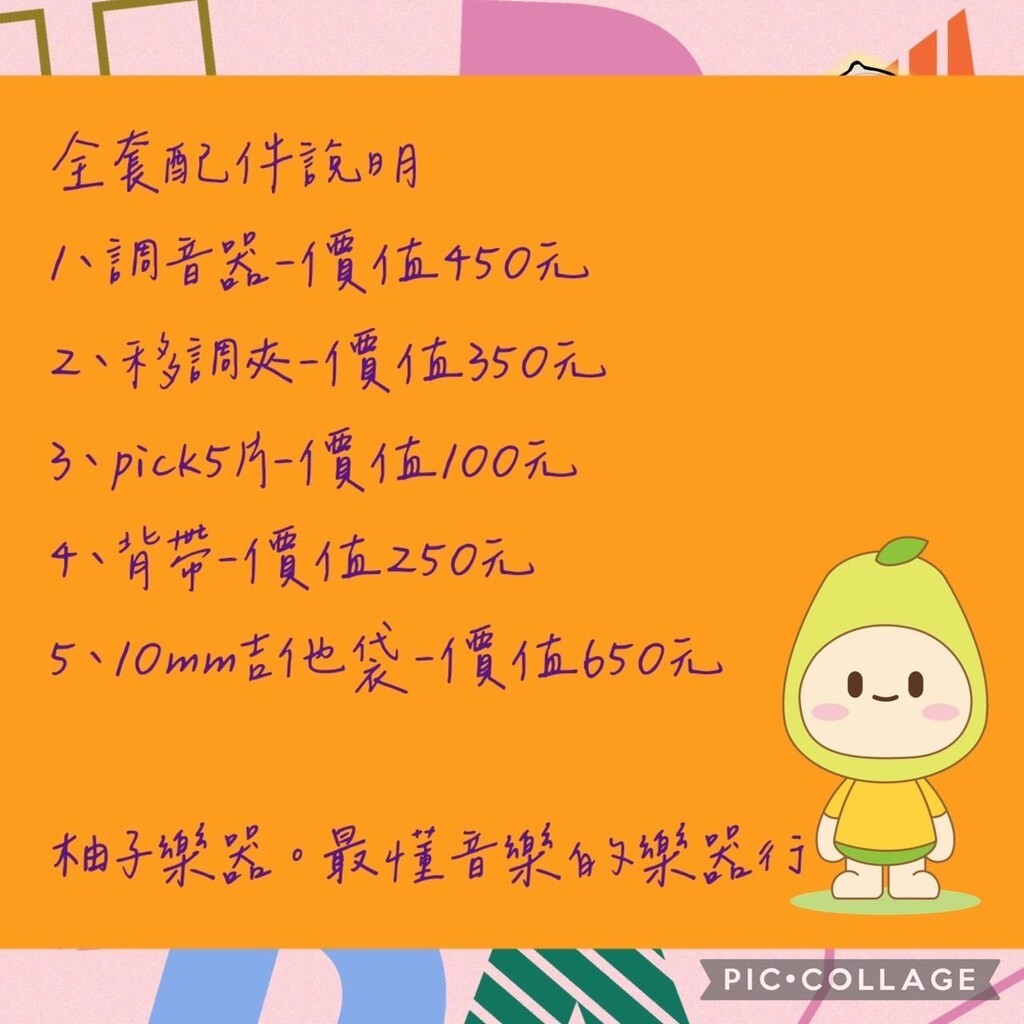 全套配件說明
1、調音器-價值450元
2、移調夾-價值350元
3、pick5片-價值100元
4、背帶-價值250元
5、10mm吉他袋-價值650元
柚子樂器。最懂音樂的樂器行
PIC•COLLAGE